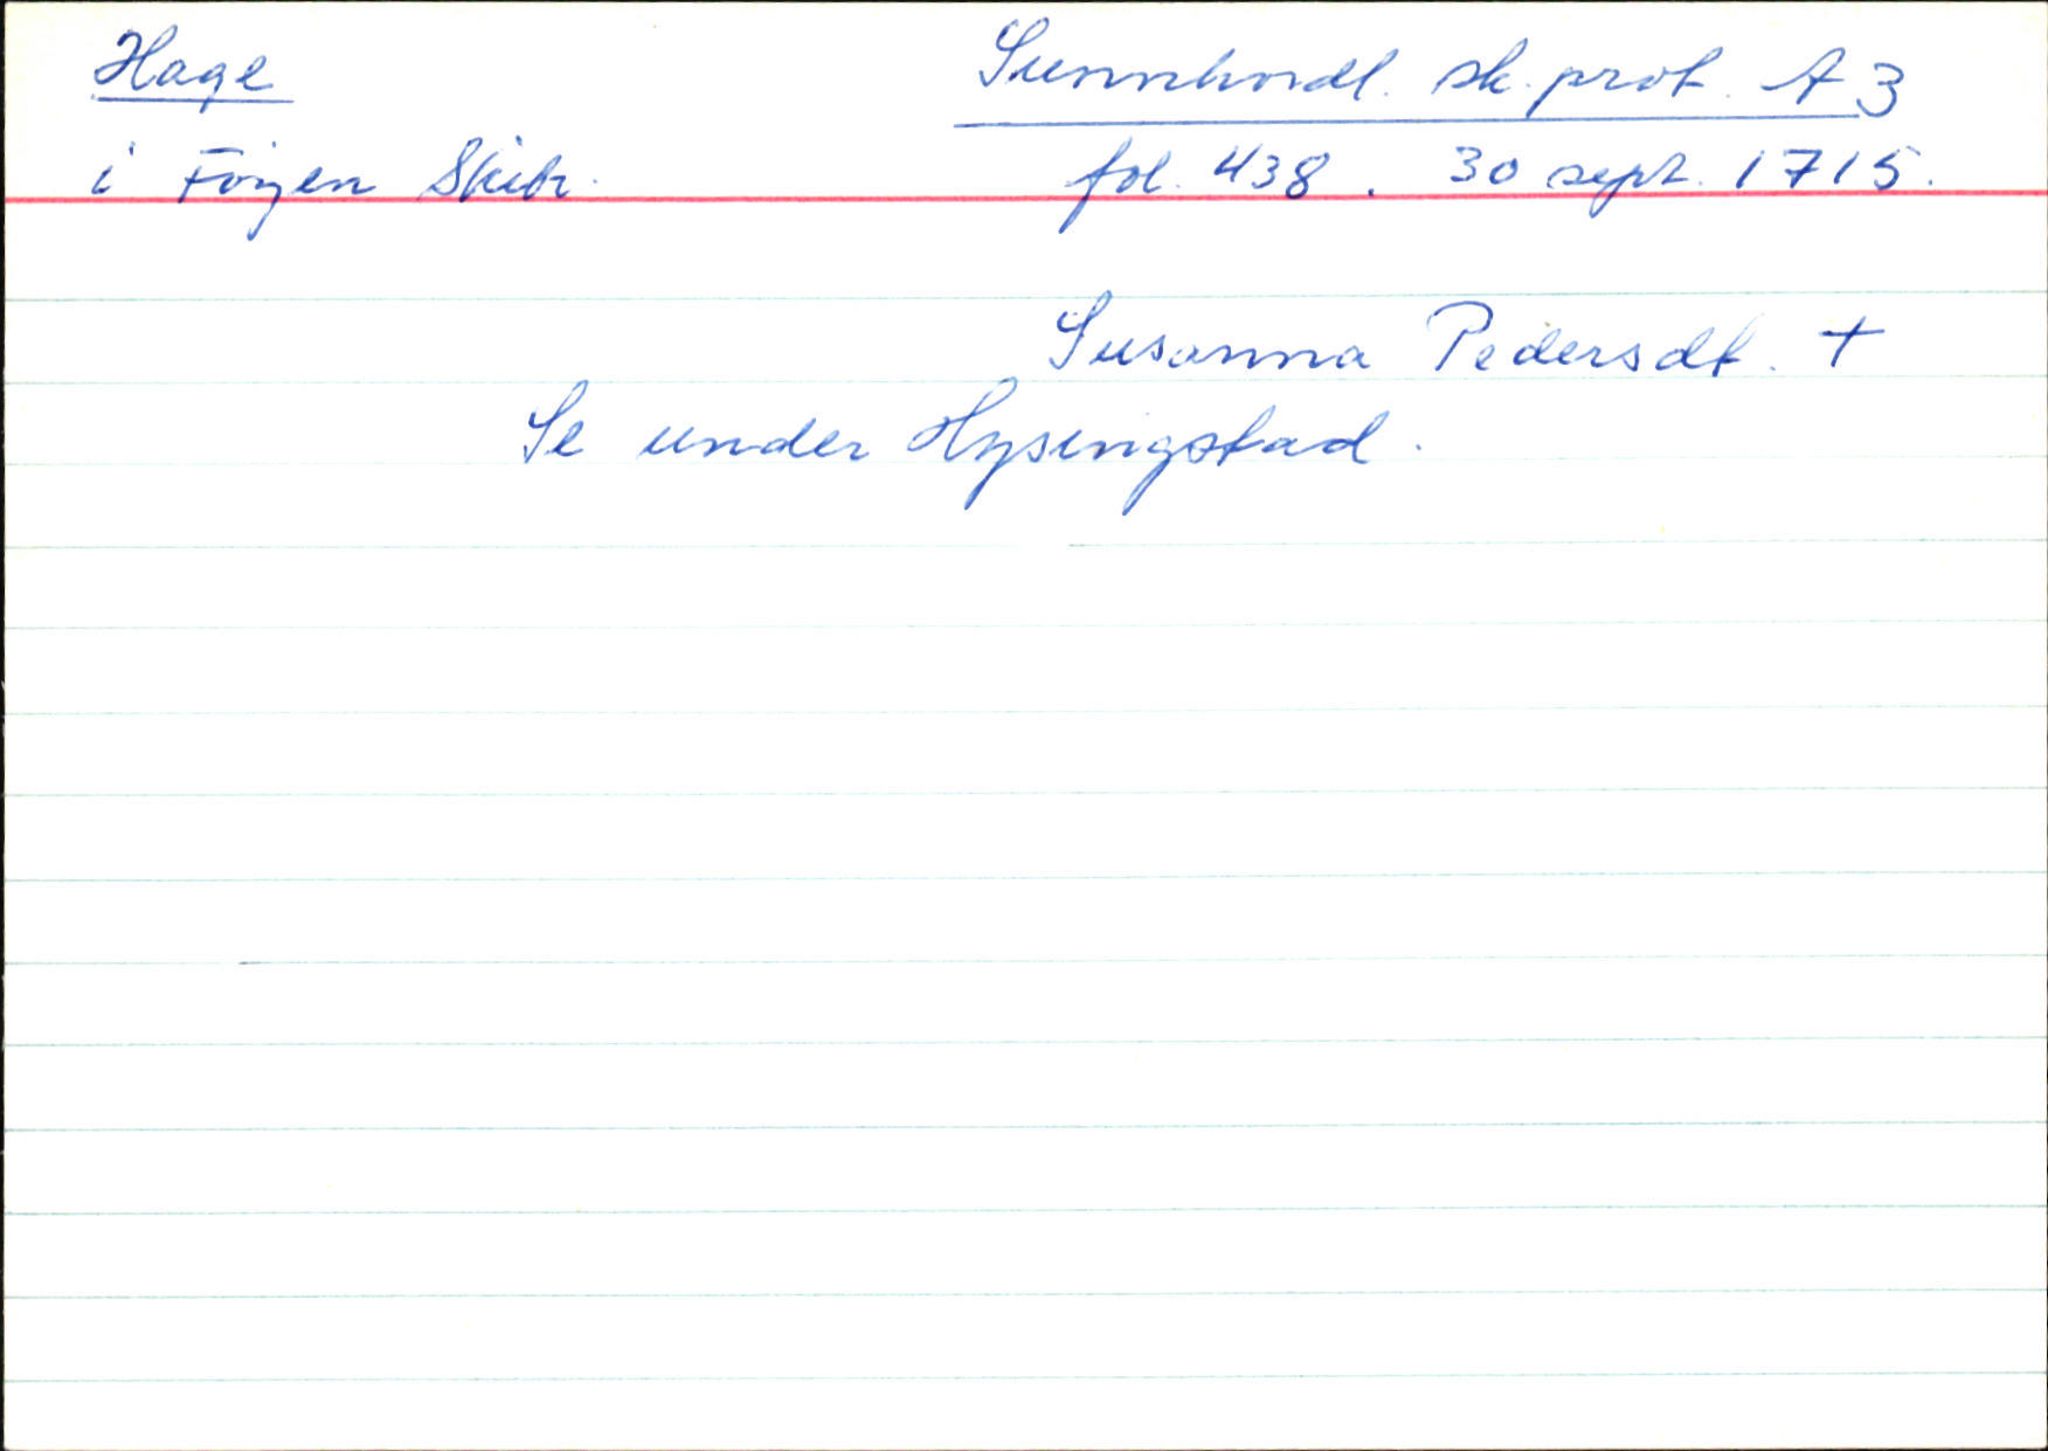 Hage
Sunnhordl. sk. prot. A 3
i Föyen Skibr.
fol. 438. 30 sept. 1715.
Susanna Pedersdt. +
Se under Hysingstad.